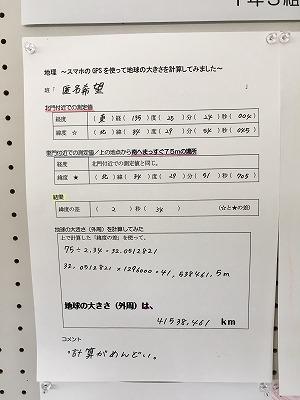 地理 ～スマホのGPSを使って地球の大きさを計算してみました～
班「 匿名希望
北門付近での測定値
経度 （ 東 ）経（ 135 ）度（ 25 ）分（ 24 ）秒（ 004 ）
緯度 ☆ （ 北 ）緯（ 34 ）度（ 29 ）分（ 54 ）秒（ 045 ）
東門付近での測定値／上の地点から南へまっすぐ75mの場所
経度 北門付近での測定値と同じ。
緯度 ★ （ 北 ）緯（ 34 ）度（ 29 ）分（ 51 ）秒（ 705 ）
結果
緯度の差 （ 2 ）秒（ 34 ） （☆と★の差）
地球の大きさ（外周）を計算してみた
上で計算した「緯度の差」を使って、
75÷2.34=32.0512821
32.0512821×1296000=41,538461,5m
地球の大きさ（外周）は、
41538,461 km
コメント
・計算がめんどい。